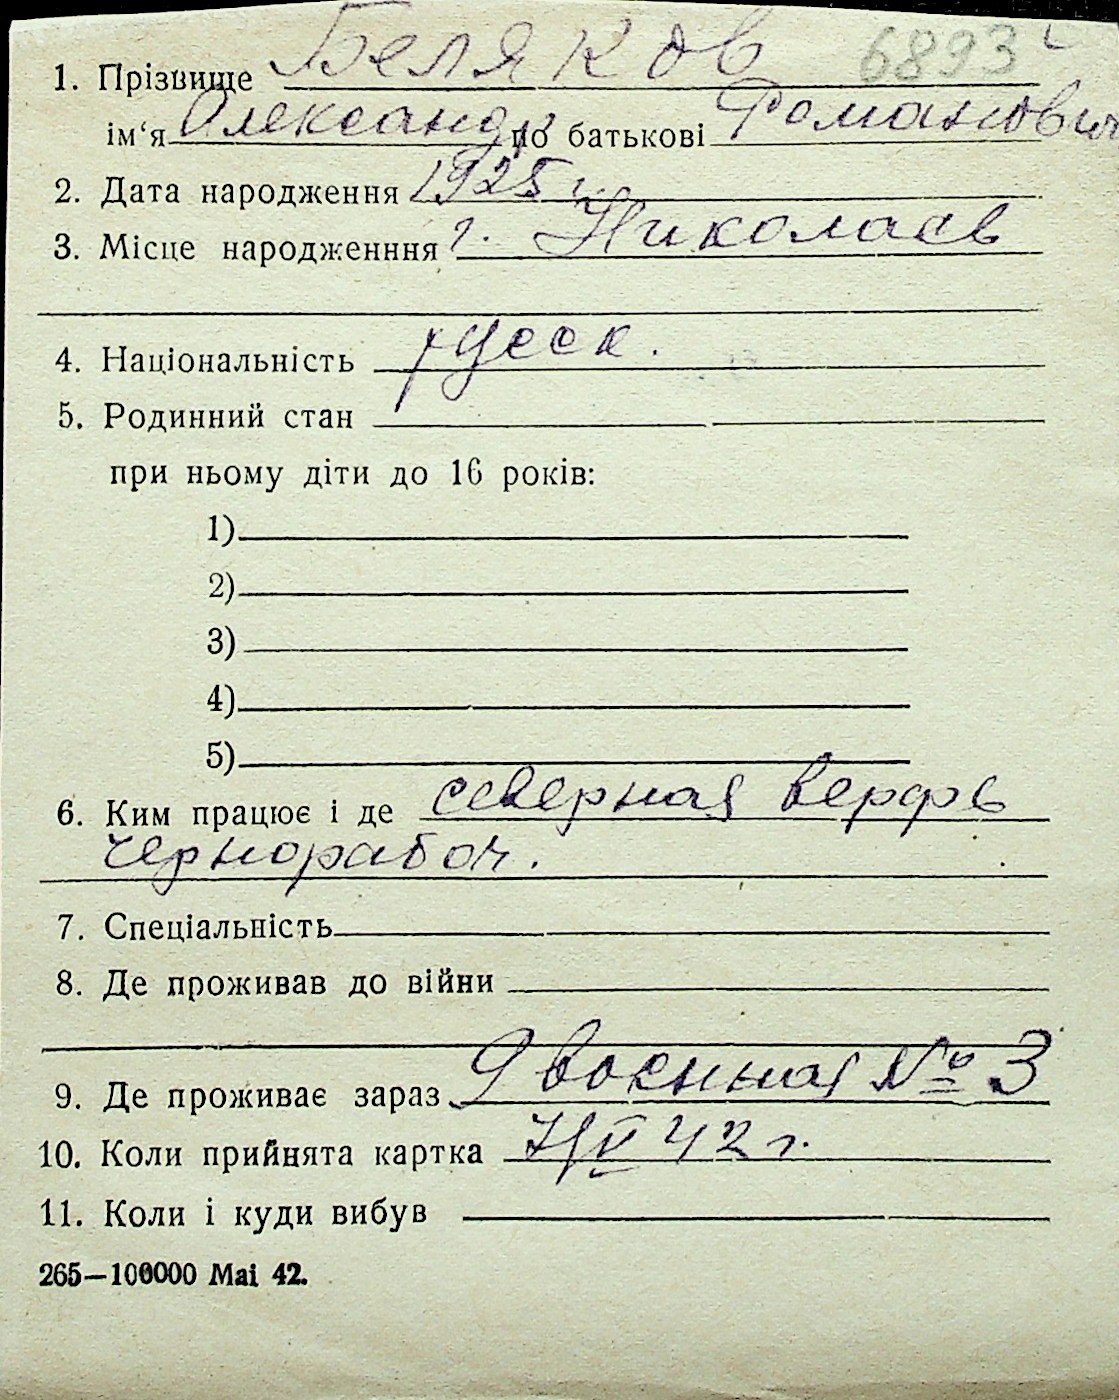 1. Прізвище Беляков 6893
ім‘я Олександр по батькові Романович
2. Дата народження 1925 г.
3. Місце народженння г. Николаев
4. Національність русск.
5. Родинний стан
при ньому діти до 16 років:
1)
2)
3)
4)
5)
6. Ким працює і де северная верфь
чернорабоч.
7. Спеціальність
8. Де проживав до війни
9. Де проживає зараз 9 военная № 3
10. Коли прийнята картка 7/V 42 г.
11. Коли і куди вибув
265—100000 Mai 42.